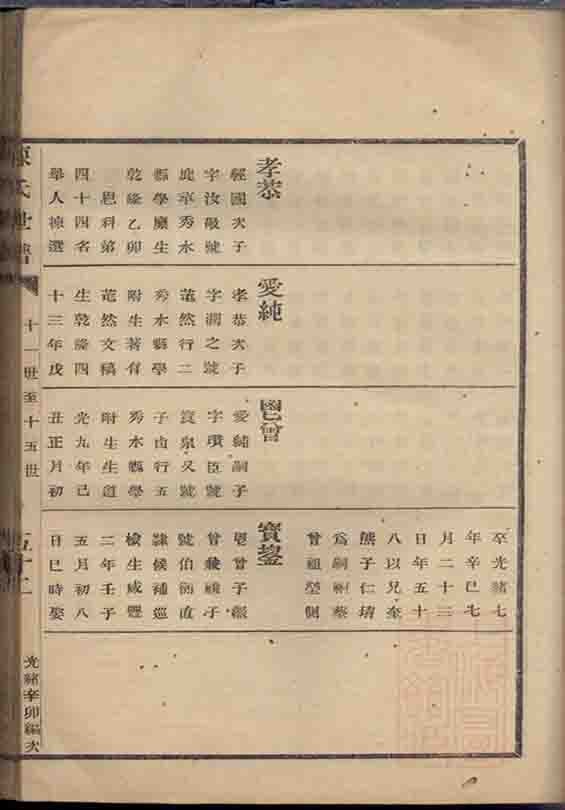 孝恭
經國次子
字汝敬號
亭秀水
縣學廩生
乾隆乙卯
恩科第
四十四名
舉人揀選
愛純
孝恭次子
字潤之號
然行二
秀水縣學
附生著有
然文稿
生乾隆四
十三年戊
曾
愛純嗣子
字瓚臣號
泉又號
行五
秀水縣學
附生生道
光九年己
丑正月初
卒光緒七
年辛巳七
月二十三
日年五十
八以兄奎
熊子仁
爲嗣祔葬
曾祖塋側
寶鋆
恩曾子繼
曾子
號伯直
隸候補巡
檢生咸豐
二年壬子
五月初八
日巳時娶
氏世譜
十一世至十五世
五十
光緒辛卯編次